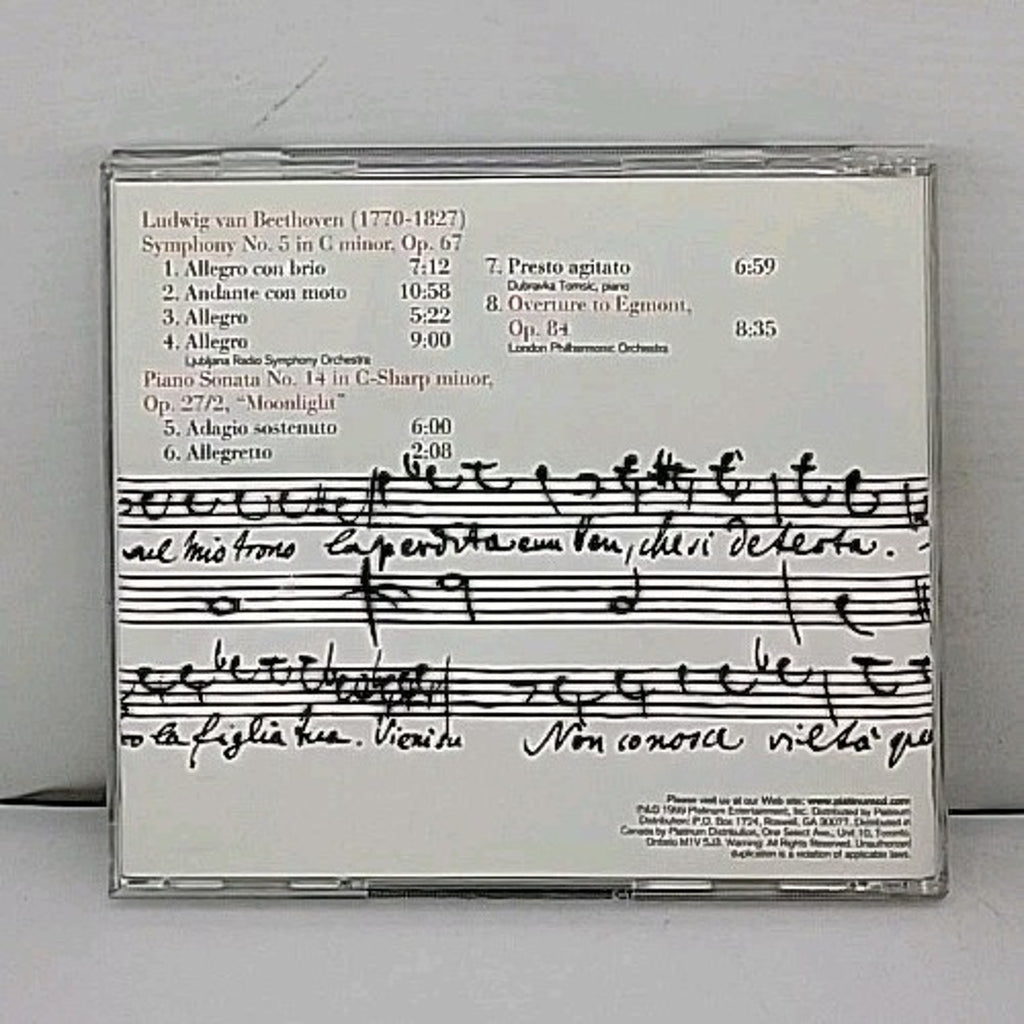 Ludwig van Beethoven (1770-1827)
Symphony No. 5 in C minor, Op. 67
1. Allegro con brio 7:12
2. Andante con moto 10:58
3. Allegro 5:22
4. Allegro 9:00
Ljubljana Radio Symphony Orchestra
Piano Sonata No. 14 in C-Sharp minor,
Op. 27/2, "Moonlight"
5. Adagio sostenuto 6:00
6. Allegretto 2:08
7. Presto agitato 6:59
Dubravka Tomsic, piano
8. Overture to Egmont,
Op. 84 8:35
London Philharmonic Orchestra
mio trono la perdita ven, che si detesta.
la figlia tua. Vieni Non conosce viltà
Please visit us at our Web site: www.platinumcd.com
P&© 1999 Platinum Entertainment, Inc. Distributed by Platinum
Distribution: P.O. Box 1724, Roswell, GA 30077. Distributed in
Canada by Platinum Distribution, One Select Ave., Unit 10, Toronto,
Ontario M1V 5J3. Warning: All Rights Reserved. Unauthorized
duplication is a violation of applicable laws.